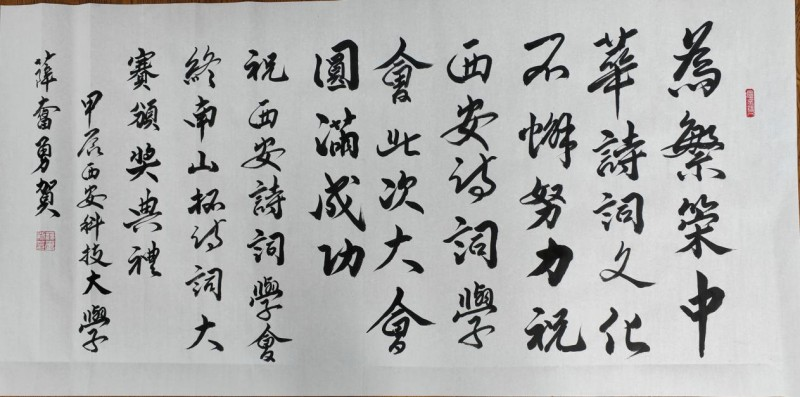 為繁榮中
華詩詞文化
不懈努力祝
西安詩詞學
會此次大會
圓滿成功
祝西安詩詞學會
終南山杯詩詞大
賽頒奖典禮
甲辰西安科技大學
薛奮勇賀